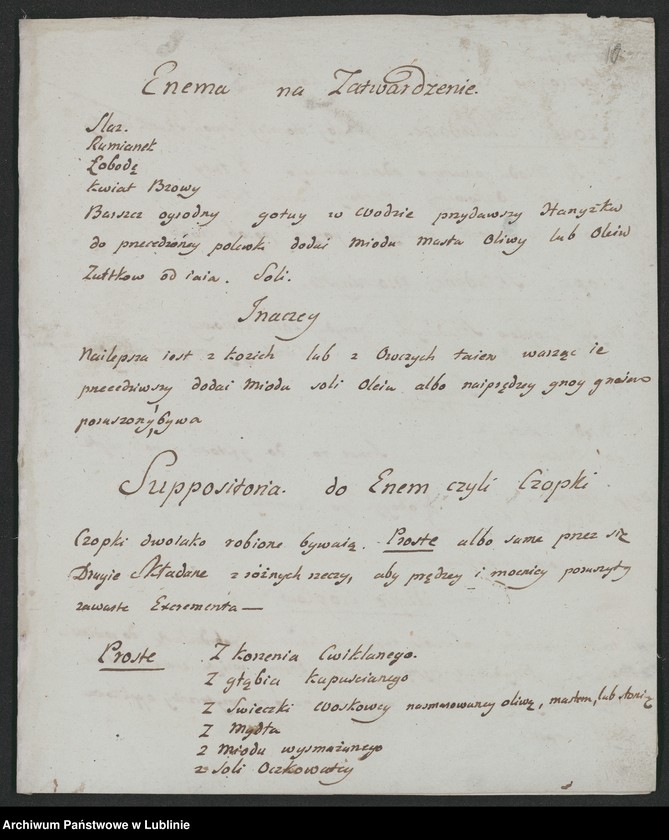 10.
Enema na Zatwardzenie.
Slaz.
Rumianek
Łobodę
Kwiat Bzowy
Barszcz ogrodny gotuy w Wodzie przydawszy Hanyżku
do precedzoney polewki dodai Miodu Masła Oliwy lub Oleiu
Zułtkow od iaia. Soli.
Inaczey
Nailepsza iest z kozich lub z Owczych łaien warząc ie
precedziwszy dodai Miodu soli Oleiu albo naiprędzey gnoy gnoiem
poruszony bywa
Suppositoria. do Enem czyli Czopki
Czopki dwoiako robione bywaią. Proste albo same przez się
Drugie Składane z różnych rzeczy, aby prędzey i mocnicy poruszyły
zawarte Excrementa —
Proste Z korzenia Cwiklanego.
Z głąbia kapuscianego
Z Swieczki Woskowey nasmarowaney oliwą, masłem, lub słonią
Z Mydła
z Miodu wysmażanego
z Soli Oczkowatey
Archiwum Państwowe w Lublinie